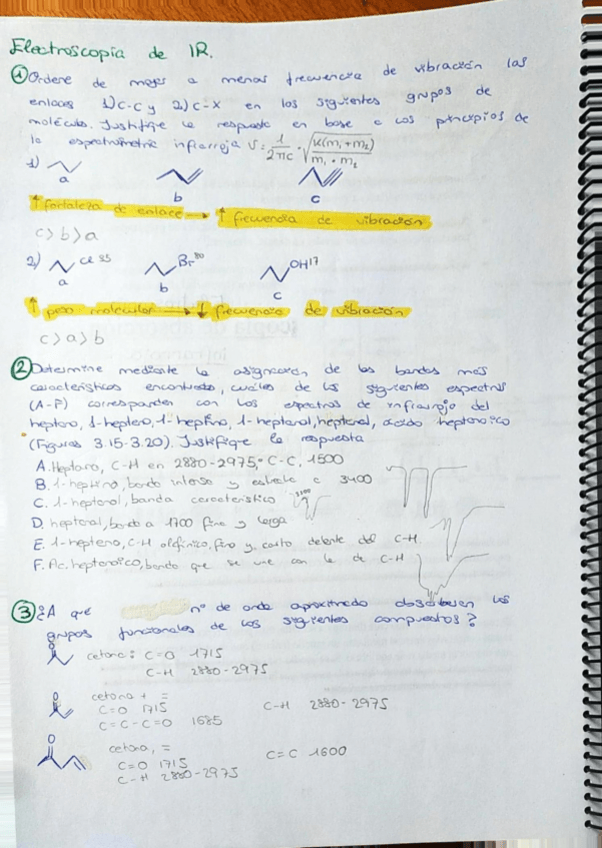 Electroscopía de IR.
① Ordene de mayor a menor frecuencia de vibración los
enlaces 1) C-C y 2) C-X en los siguientes grupos de
moléculas. Justifique la respuesta en base a los principios de
la espectrometría infrarroja ν = 1/2πc · √k(m₁+m₂)/m₁·m₂
1)
a
b
c
↑ fortaleza de enlace → ↑ frecuencia de vibración
c > b > a
2) Cl 35
a
Br⁸⁰
b
OH¹⁷
c
↑ peso molecular → ↓ frecuencia de vibración
c > a > b
② Determine mediante la asignación de las bandas más
características encontradas, cuáles de los siguientes espectros
(A-F) corresponden con los espectros de infrarrojo del
heptano, 1-hepteno, 1-heptino, 1-heptanol, heptanal, ácido heptanoico
(Figuras 3.15-3.20). Justifique la respuesta
A. Heptano, C-H en 2880-2975, C-C, 1500
B. 1-heptino, banda intensa y estrecha a 3400
C. 1-heptanol, banda característico
D. heptanal, banda a 1700 fina y larga
E. 1-hepteno, C-H olefínico, fino y corto delante del C-H.
F. Ac. heptanoico, banda que se une con la de C-H
③ ¿A que nº de onda aproximado absorben los
grupos funcionales de los siguientes compuestos?
O
cetona: C=O 1715
C-H 2880-2975
O
cetona + =
C=O 1715 C-H 2880-2975
C=C-C=O 1685
O
cetona, = C=C 1600
C=O 1715
C-H 2880-2975